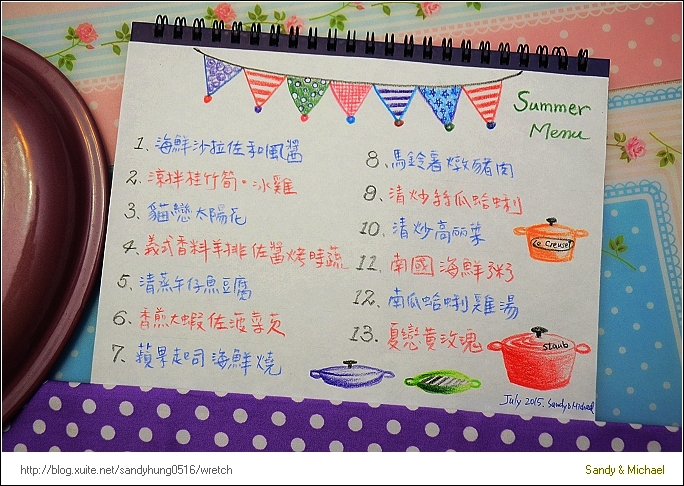 Summer
Menu
1. 海鮮沙拉佐和風醬
2. 涼拌桂竹筍・冰雞
3. 貓戀太陽花
4. 義式香料羊排佐醬烤時蔬
5. 清蒸午仔魚豆腐
6. 香煎大蝦佐菠菜
7. 蘋果起司海鮮燒
8. 馬鈴薯燉豬肉
9. 清炒絲瓜蛤蜊
10. 清炒高麗菜
11. 南國海鮮粥
12. 南瓜蛤蜊雞湯
13. 夏戀黃玫瑰
Le Creuset
staub
July 2015. Sandy & Michael
http://blog.xuite.net/sandyhung0516/wretch
Sandy & Michael